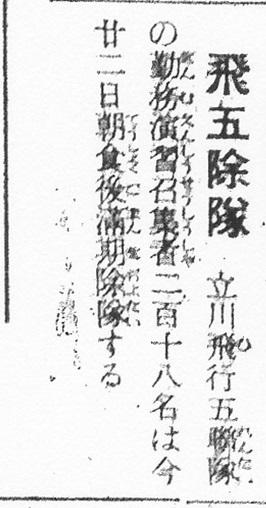 飛五除隊 立川飛行五聯隊
の勤務演習召集者二百十八名は今
廿二日朝食後滿期除隊する